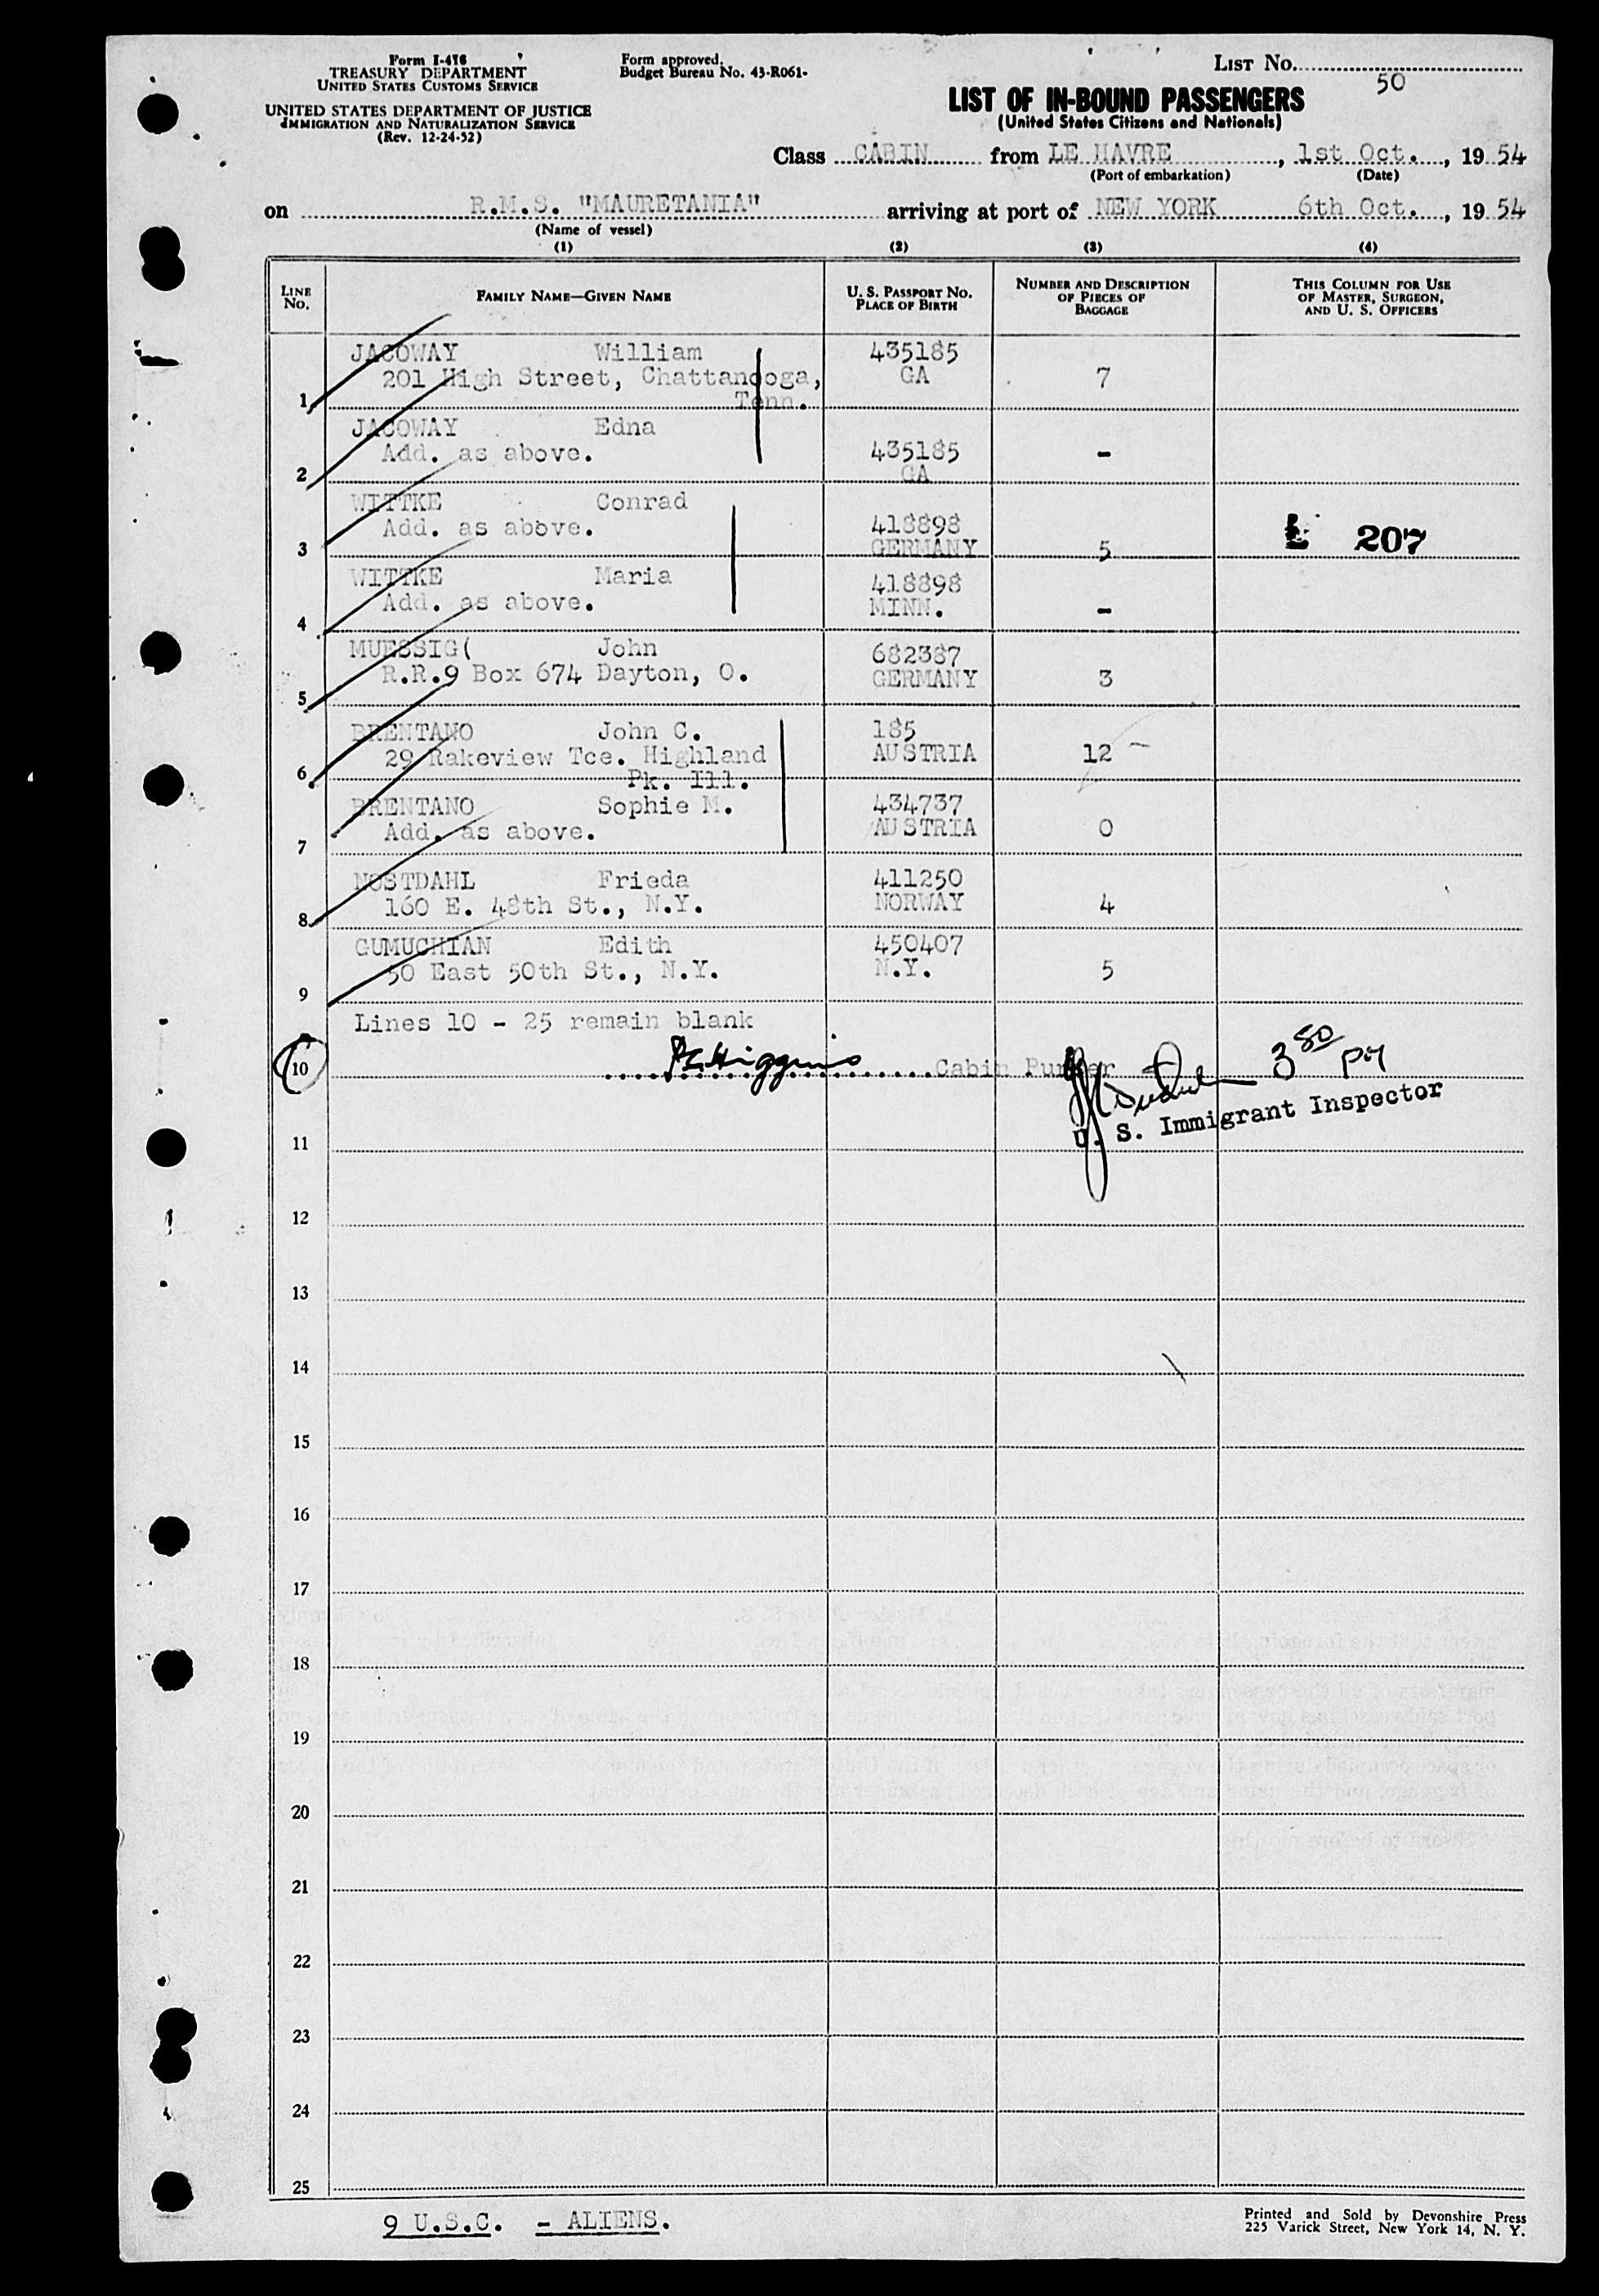 Form I-418
TREASURY DEPARTMENT
UNITED STATES CUSTOMS SERVICE
UNITED STATES DEPARTMENT OF JUSTICE
IMMIGRATION AND NATURALIZATION SERVICE
(Rev. 12-24-52)
Form approved.
Budget Bureau No. 43-R061-
LIST NO.
50
LIST OF IN-BOUND PASSENGERS
(United States Citizens and Nationals)
Class CABIN from LE HAVRE, 1st Oct., 19 54
(Port of embarkation) (Date)
on R.M.S. "MAURETANIA" arriving at port of NEW YORK 6th Oct., 19 54
(Name of vessel)
(1) (2) (3) (4)
LINE No. FAMILY NAME—GIVEN NAME U. S. PASSPORT NO. PLACE OF BIRTH NUMBER AND DESCRIPTION OF PIECES OF BAGGAGE THIS COLUMN FOR USE OF MASTER, SURGEON, AND U. S. OFFICERS
JACOWAY William 435185
201 High Street, Chattanooga, GA 7
1 Tenn.
JACOWAY Edna
Add. as above. 435185 -
2 GA
WITTKE Conrad
Add. as above. 418898 207
3 GERMANY 5
WITTKE Maria 418898
Add. as above. MINN. -
4
MUESSIG( John 682387
R.R.9 Box 674 Dayton, O. GERMANY 3
5
BRENTANO John C. 185
29 Rakeview Tce. Highland AUSTRIA 12 -
6 Pk. Ill.
BRENTANO Sophie M. 434737
Add. as above. AUSTRIA 0
7
NOSTDAHL Frieda 411250
160 E. 48th St., N.Y. NORWAY 4
8
GUMUCHIAN Edith 450407
50 East 50th St., N.Y. N.Y. 5
9
Lines 10 - 25 remain blank
10 Higgins Cabin Purser 3 50 PM
U. S. Immigrant Inspector
11
12
13
14
15
16
17
18
19
20
21
22
23
24
25
9 U.S.C. - ALIENS.
Printed and Sold by Devonshire Press
225 Varick Street, New York 14, N. Y.